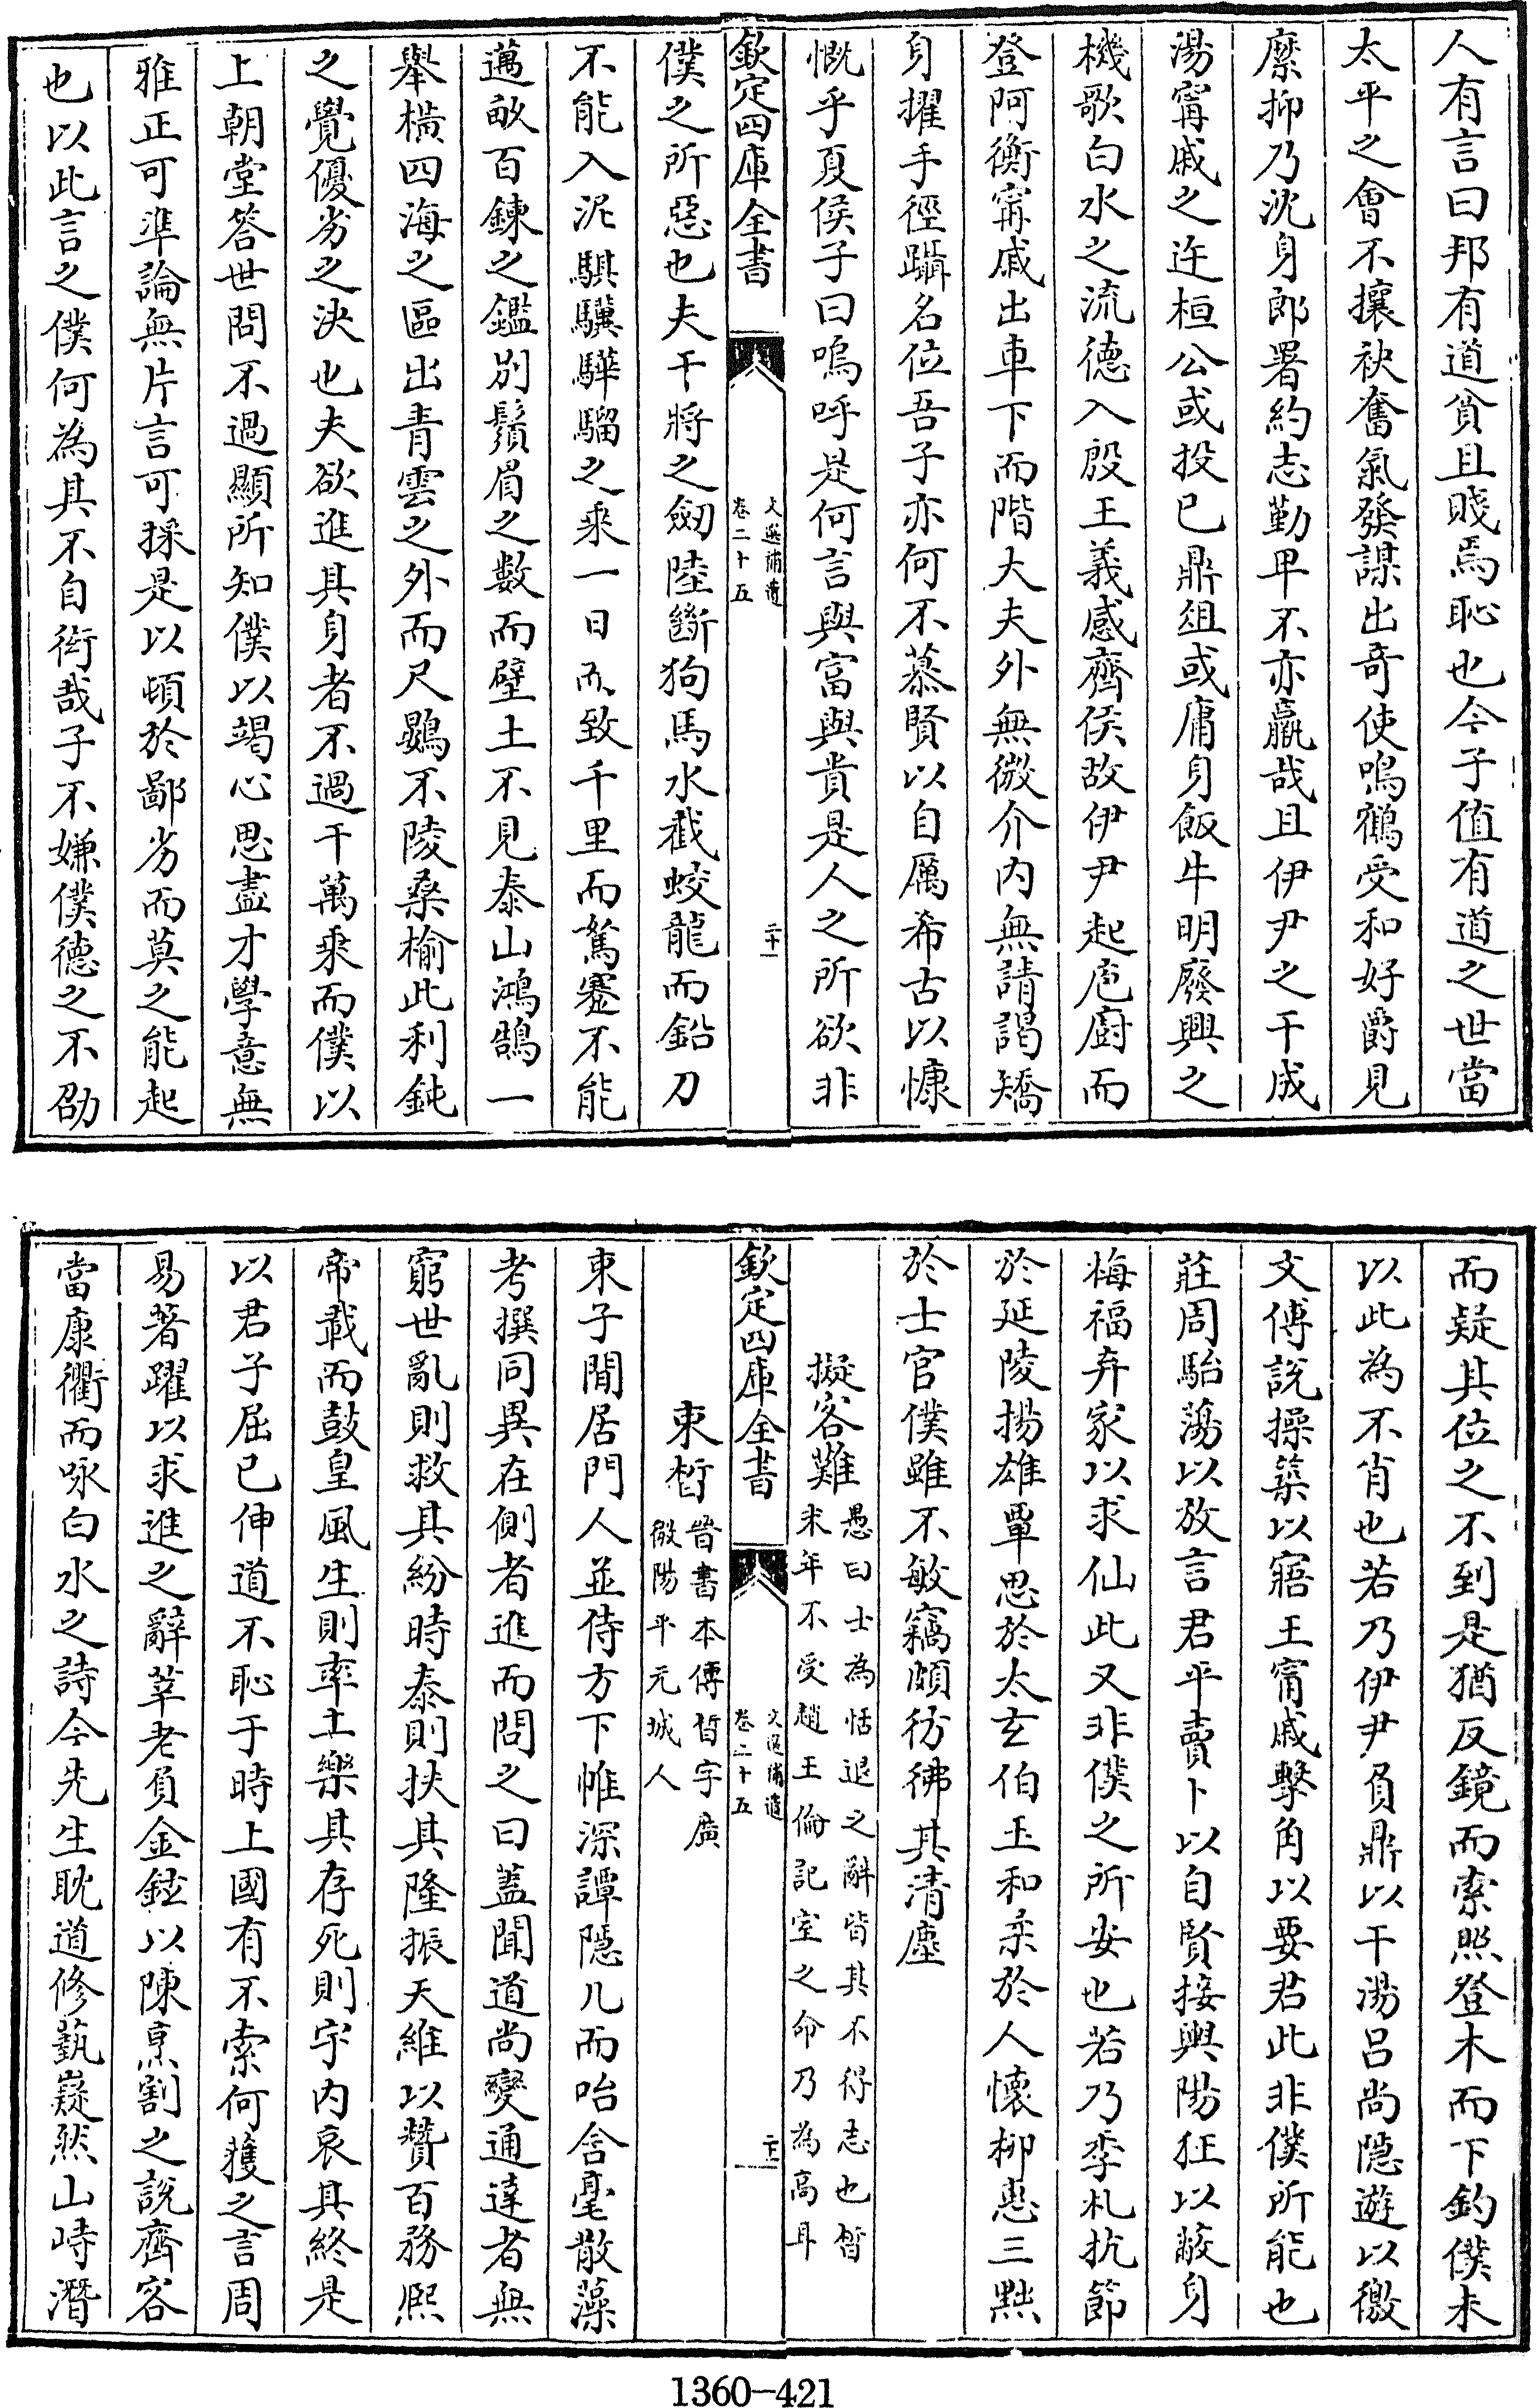 人有言曰邦有道貧且賤焉恥也今子值有道之世當
太平之會不攘袂奮氣發謀出奇使鳴鶴受和好爵見
縻抑乃沈身郎署約志勤卑不亦羸哉且伊尹之干成
湯甯戚之迕桓公或投已鼎俎或庸身飯牛明廢興之
機歌白水之流德入殷王義感齊侯故伊尹起庖廚而
登阿衡甯戚出車下而階大夫外無微介内無請謁矯
身擢手徑躡名位吾子亦何不慕賢以自厲希古以慷
慨乎夏侯子曰嗚呼是何言與富與貴是人之所欲非
欽定四庫全書
文選補遺
卷二十五
二十一
僕之所惡也夫干將之劒陸斷狗馬水截蛟龍而鉛刀
不能入泥騏驥驊騮之乘一日而致千里而駑蹇不能
邁畝百鍊之鑑别鬚眉之數而壁土不見泰山鴻鵠一
舉横四海之區出青雲之外而尺鷃不陵桑榆此利鈍
之覺優劣之決也夫欲進其身者不過干萬乘而僕以
上朝堂答世問不過顯所知僕以竭心思盡才學意無
雅正可準論無片言可採是以頓於鄙劣而莫之能起
也以此言之僕何為其不自衒哉子不嫌僕德之不劭
而疑其位之不到是猶反鏡而索照登木而下釣僕未
以此為不肖也若乃伊尹負鼎以干湯吕尚隱遊以徼
文傅說操築以寤王甯戚擊角以要君此非僕所能也
莊周駘蕩以放言君平賣卜以自賢接輿陽狂以蔽身
梅福弃家以求仙此又非僕之所安也若乃季札抗節
於延陵揚雄覃思於太玄伯玉和柔於人懷柳惠三黜
於士官僕雖不敏竊頗彷彿其清塵
擬客難
愚曰士為恬退之辭皆其不得志也晳
末年不受趙王倫記室之命乃為高耳
欽定四庫全書
文選補遺
卷二十五
二十二
束晳
晉書本傳晳字廣
微陽平元城人
束子閒居門人並侍方下帷深譚隱几而咍含毫散藻
考撰同異在側者進而問之曰蓋聞道尚變通達者無
窮世亂則救其紛時泰則扶其隆振天維以贊百務熙
帝載而鼓皇風生則率土樂其存死則宇内哀其終是
以君子屈已伸道不恥于時上國有不索何獲之言周
易著躍以求進之辭莘老負金鉉以陳烹割之說齊客
當康衢而咏白水之詩今先生耽道修藝嶷然山峙潛
1360-421